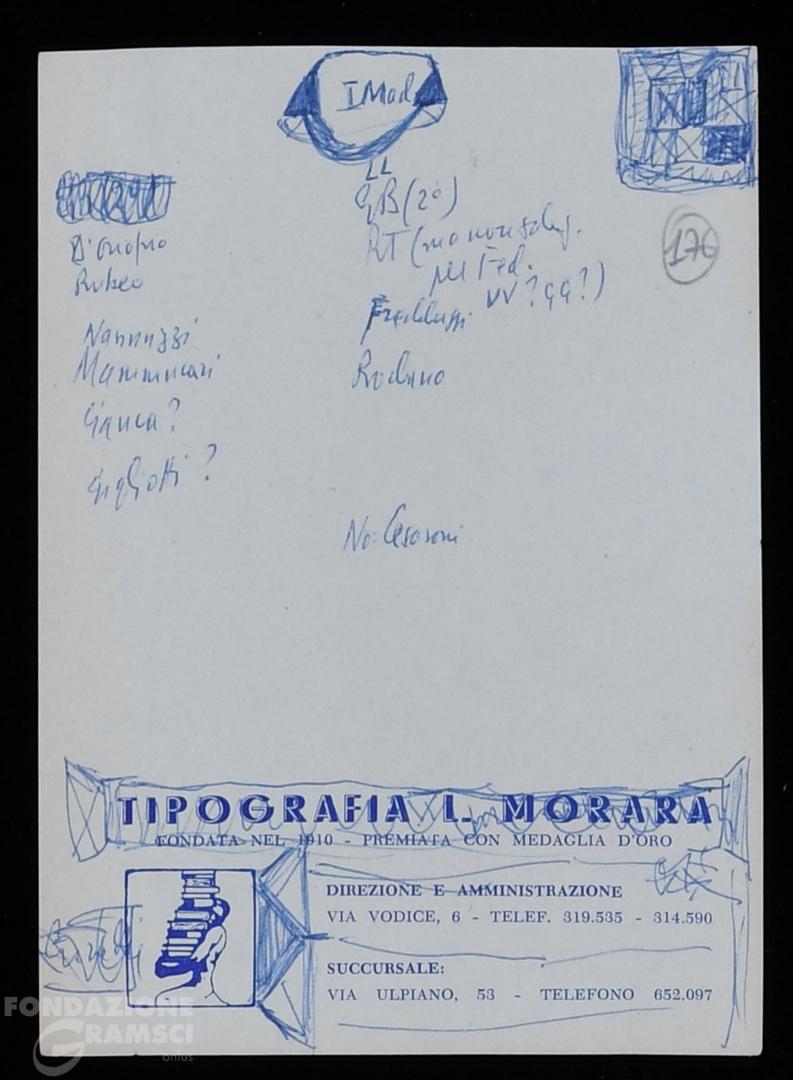 I Mad
LL
GB (20)
RT (ma non so
per Fed.
VV? GG?)
D'Onofrio
Rubeo
Nannuzzi
Mammucari
Gigliotti?
Freddussi
Rodano
No: Cesaroni
176
TIPOGRAFIA L. MORARA
FONDATA NEL 1910 - PREMIATA CON MEDAGLIA D'ORO
DIREZIONE E AMMINISTRAZIONE
VIA VODICE, 6 - TELEF. 319.535 - 314.590
SUCCURSALE:
VIA ULPIANO, 53 - TELEFONO 652.097
FONDAZIONE
GRAMSCI
onlus